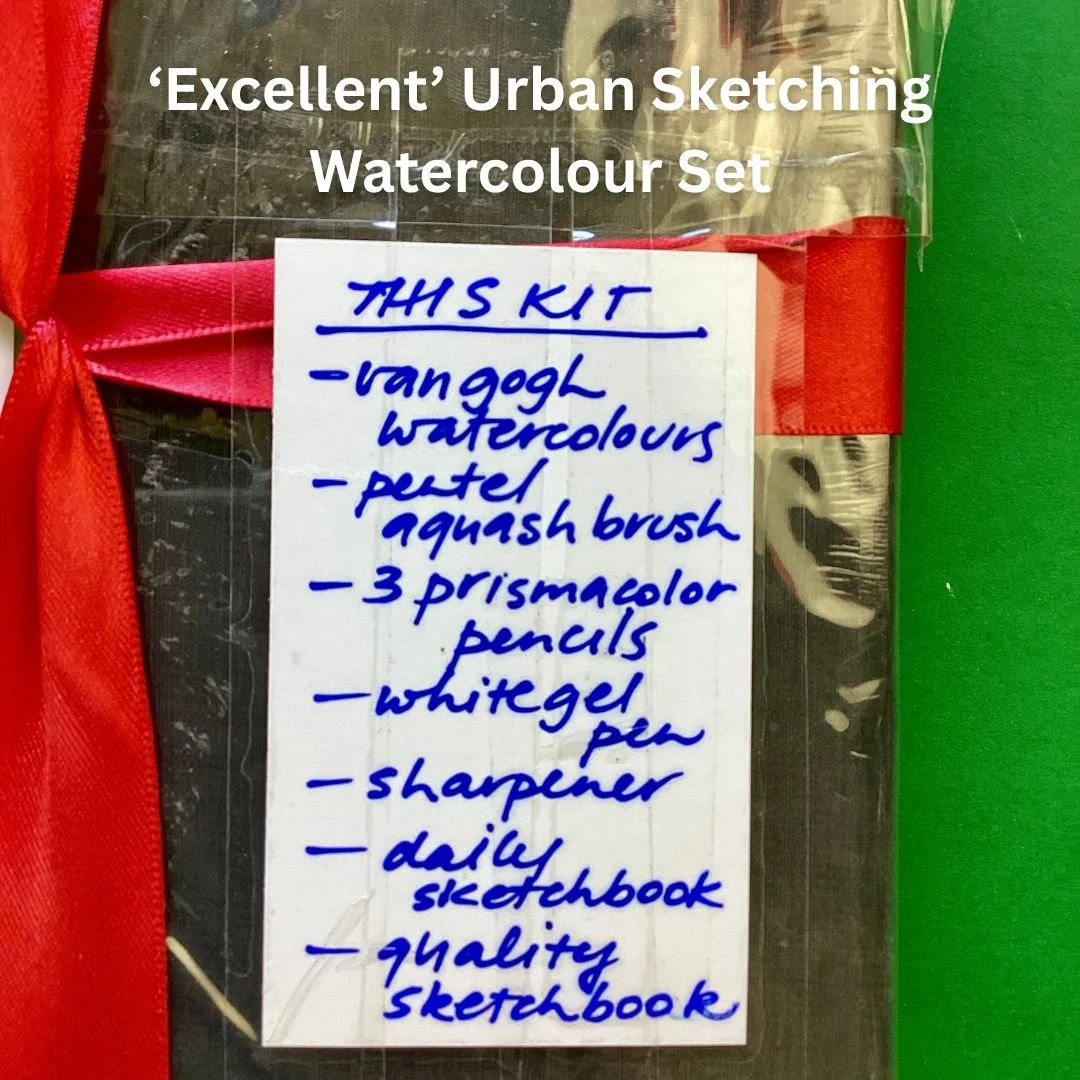 ‘Excellent’ Urban Sketching
Watercolour Set
THIS KIT
- van gogh
watercolours
- pentel
aquash brush
- 3 prismacolor
pencils
- white gel
pen
- sharpener
- daily
sketchbook
- quality
sketchbook